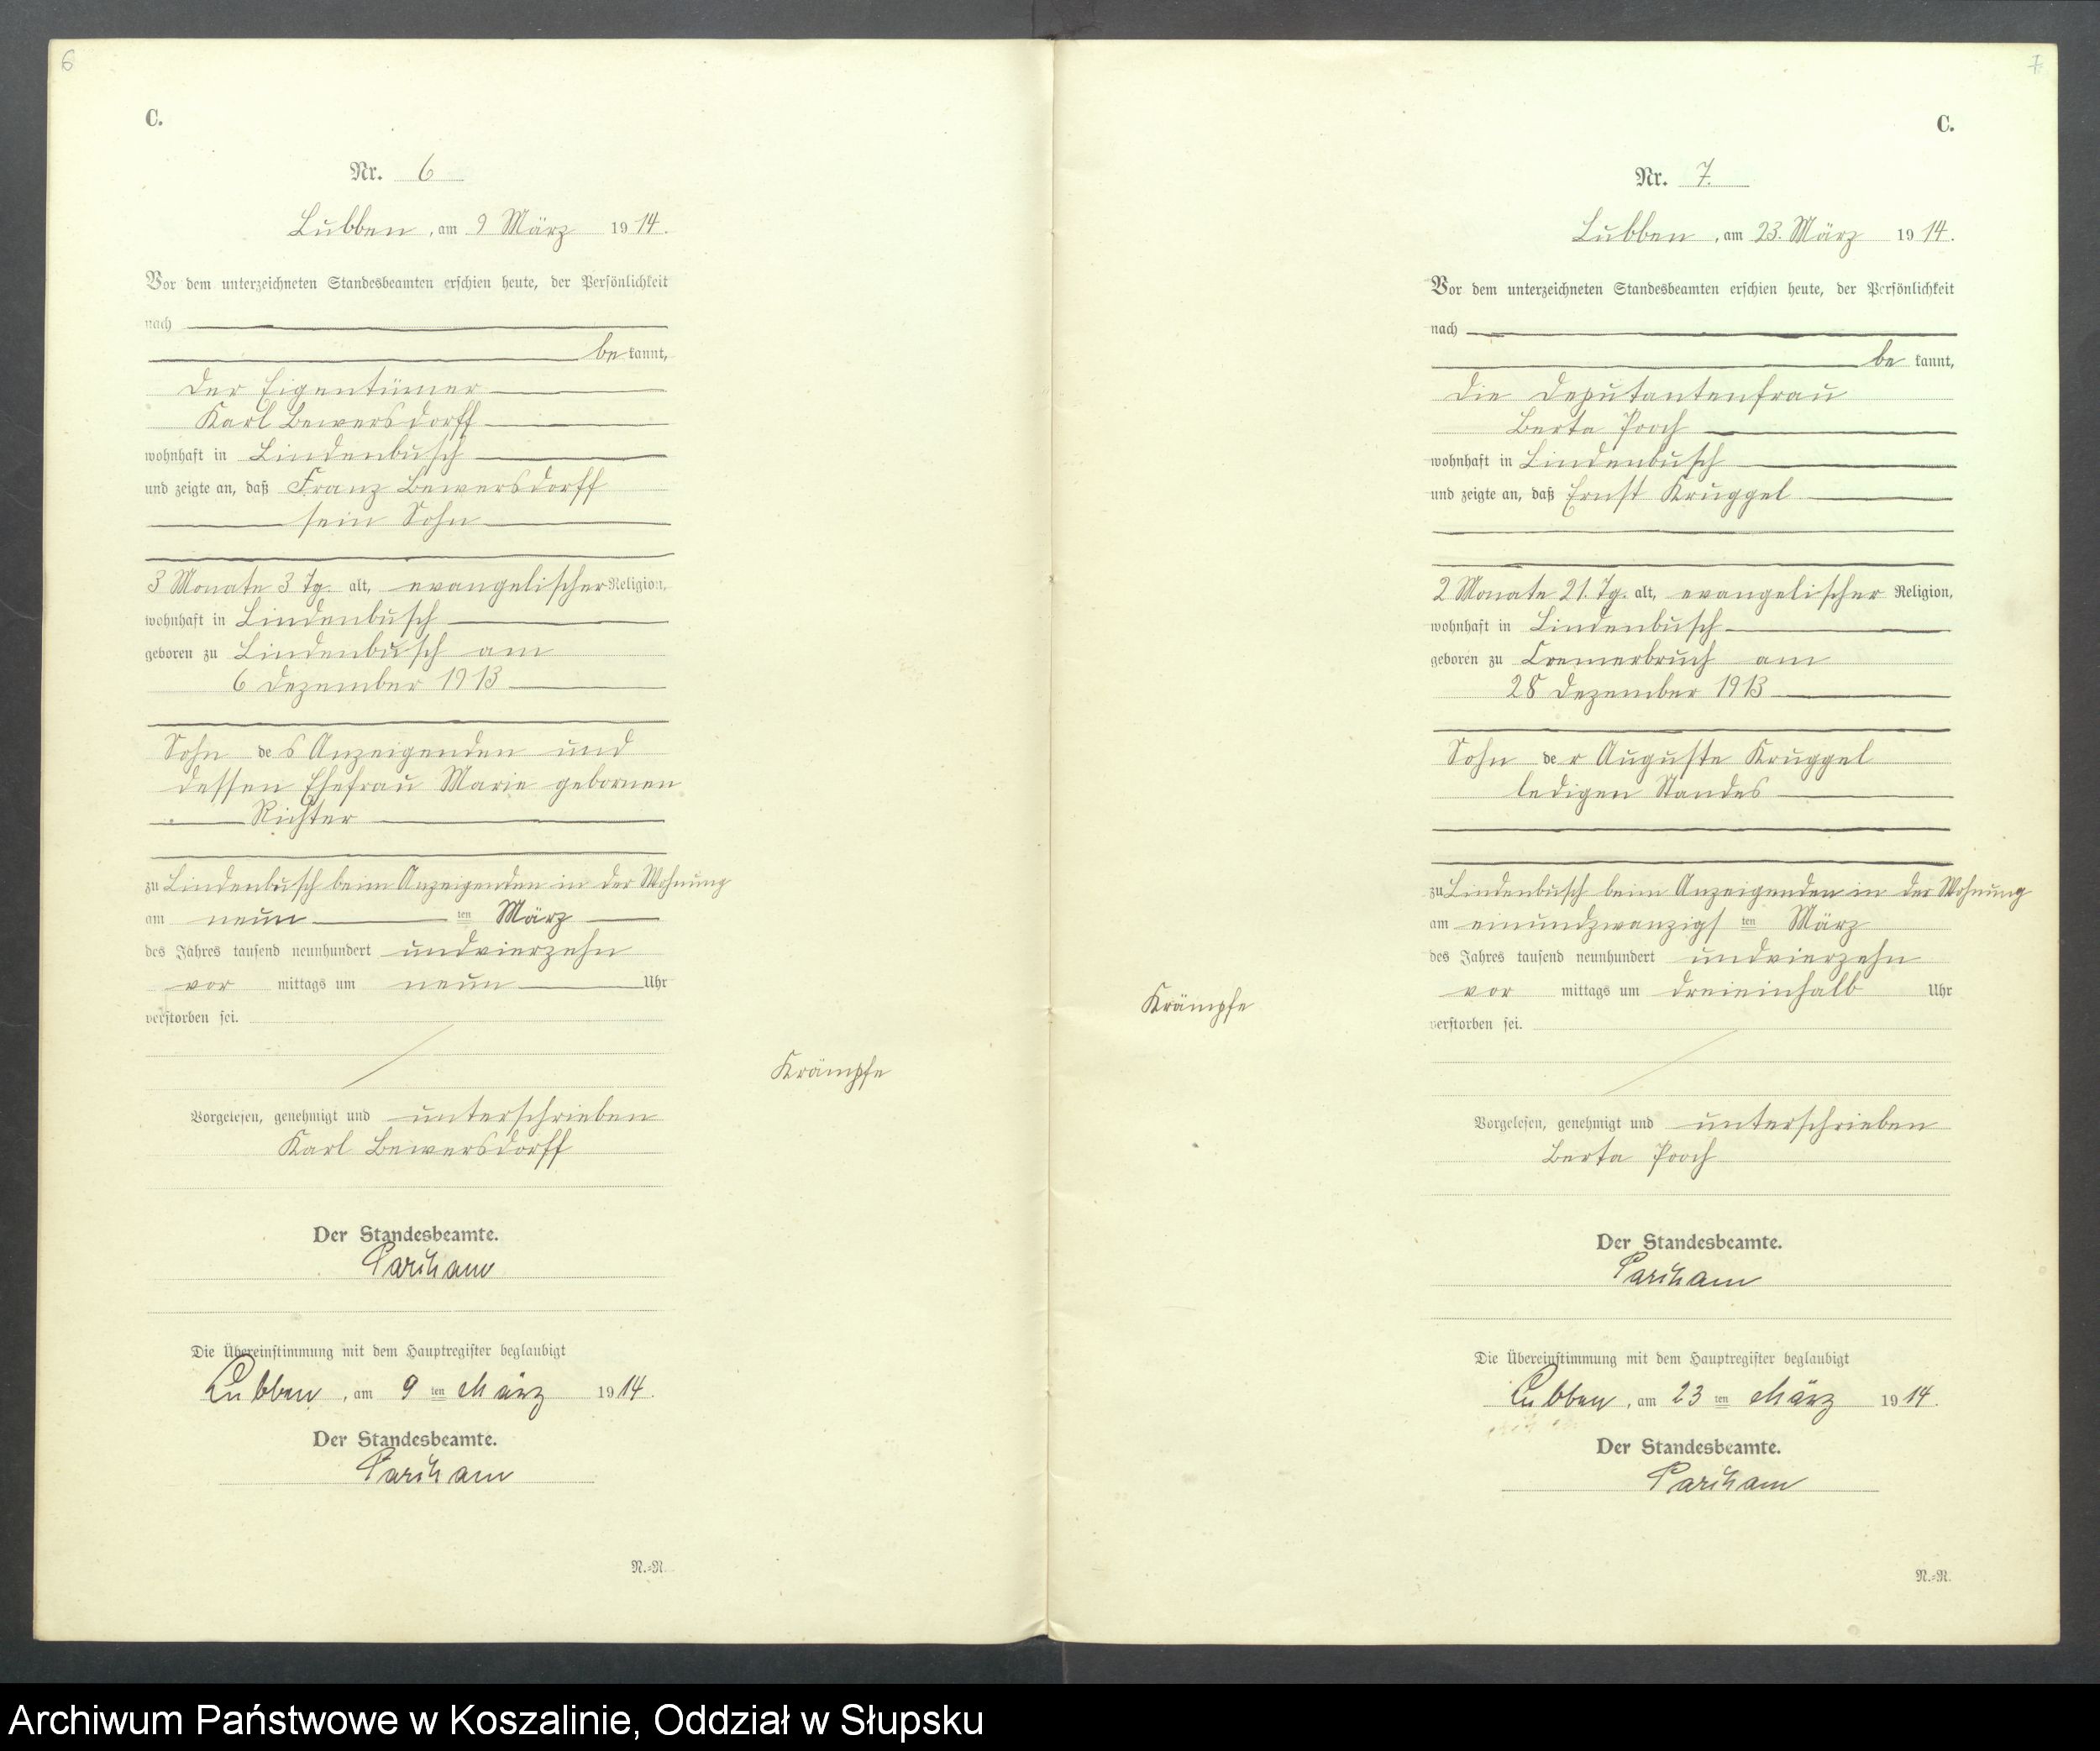 6
C.
Nr. 6
Lubben, am 9 März 1914.
Vor dem unterzeichneten Standesbeamten erschien heute, der Persönlichkeit
nach
be kannt,
der Eigentümer
Karl Bewersdorff
wohnhaft in Lindenbusch
und zeigte an, daß Franz Bewersdorff
sein Sohn
3 Monate 3 Tg. alt, evangelischer Religion,
wohnhaft in Lindenbusch
geboren zu Lindenbusch am
6 Dezember 1913
Sohn des Anzeigenden und
dessen Ehefrau Marie gebornen
Richter
zu Lindenbusch beim Anzeigenden in der Wohnung
am neun ten März
des Jahres tausend neunhundert undvierzehn
vor mittags um neun Uhr
verstorben sei.
Krämpfe
Vorgelesen, genehmigt und unterschrieben
Karl Bewersdorff
Der Standesbeamte.
Die Übereinstimmung mit dem Hauptregister beglaubigt
Lubben, am 9 ten März 1914.
Der Standesbeamte.
N.=R.
7
C.
Nr. 7.
Lubben, am 23. März 1914.
Vor dem unterzeichneten Standesbeamten erschien heute, der Persönlichkeit
nach
be kannt,
die Deputantenfrau
Berta Pooch
wohnhaft in Lindenbusch
und zeigte an, daß Ernst Kruggel
2 Monate 21. Tg. alt, evangelischer Religion,
wohnhaft in Lindenbusch
geboren zu Cremerbruch am
28 Dezember 1913
Sohn der Auguste Kruggel
ledigen Standes
zu Lindenbusch beim Anzeigenden in der Wohnung
am einundzwanzigs ten März
des Jahres tausend neunhundert undvierzehn
vor mittags um dreieinhalb Uhr
Krämpfe
verstorben sei.
Vorgelesen, genehmigt und unterschrieben
Berta Pooch
Der Standesbeamte.
Die Übereinstimmung mit dem Hauptregister beglaubigt
Lubben, am 23 ten März 1914.
Der Standesbeamte.
N.=R.
Archiwum Państwowe w Koszalinie, Oddział w Słupsku